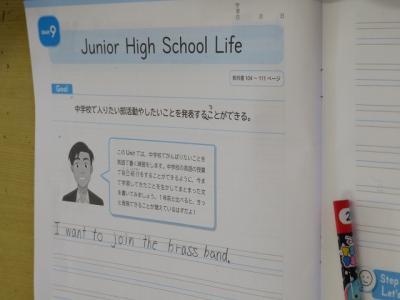 Unit 9
月 日
Junior High School Life
教科書 104 ～ 111 ページ
Goal
中学校で入りたい部活動やしたいことを発表することができる。
このUnitでは、中学校でがんばりたいことを
英語で書く練習をします。中学校の英語の授業
で自己紹介をすることができるように、今ま
で学習してきたことを生かしてまとまった文
を書いてみましょう。1年前と比べると、きっ
と表現できることが増えているはずだよ!
I want to join the brass band.
2
Step
Let's